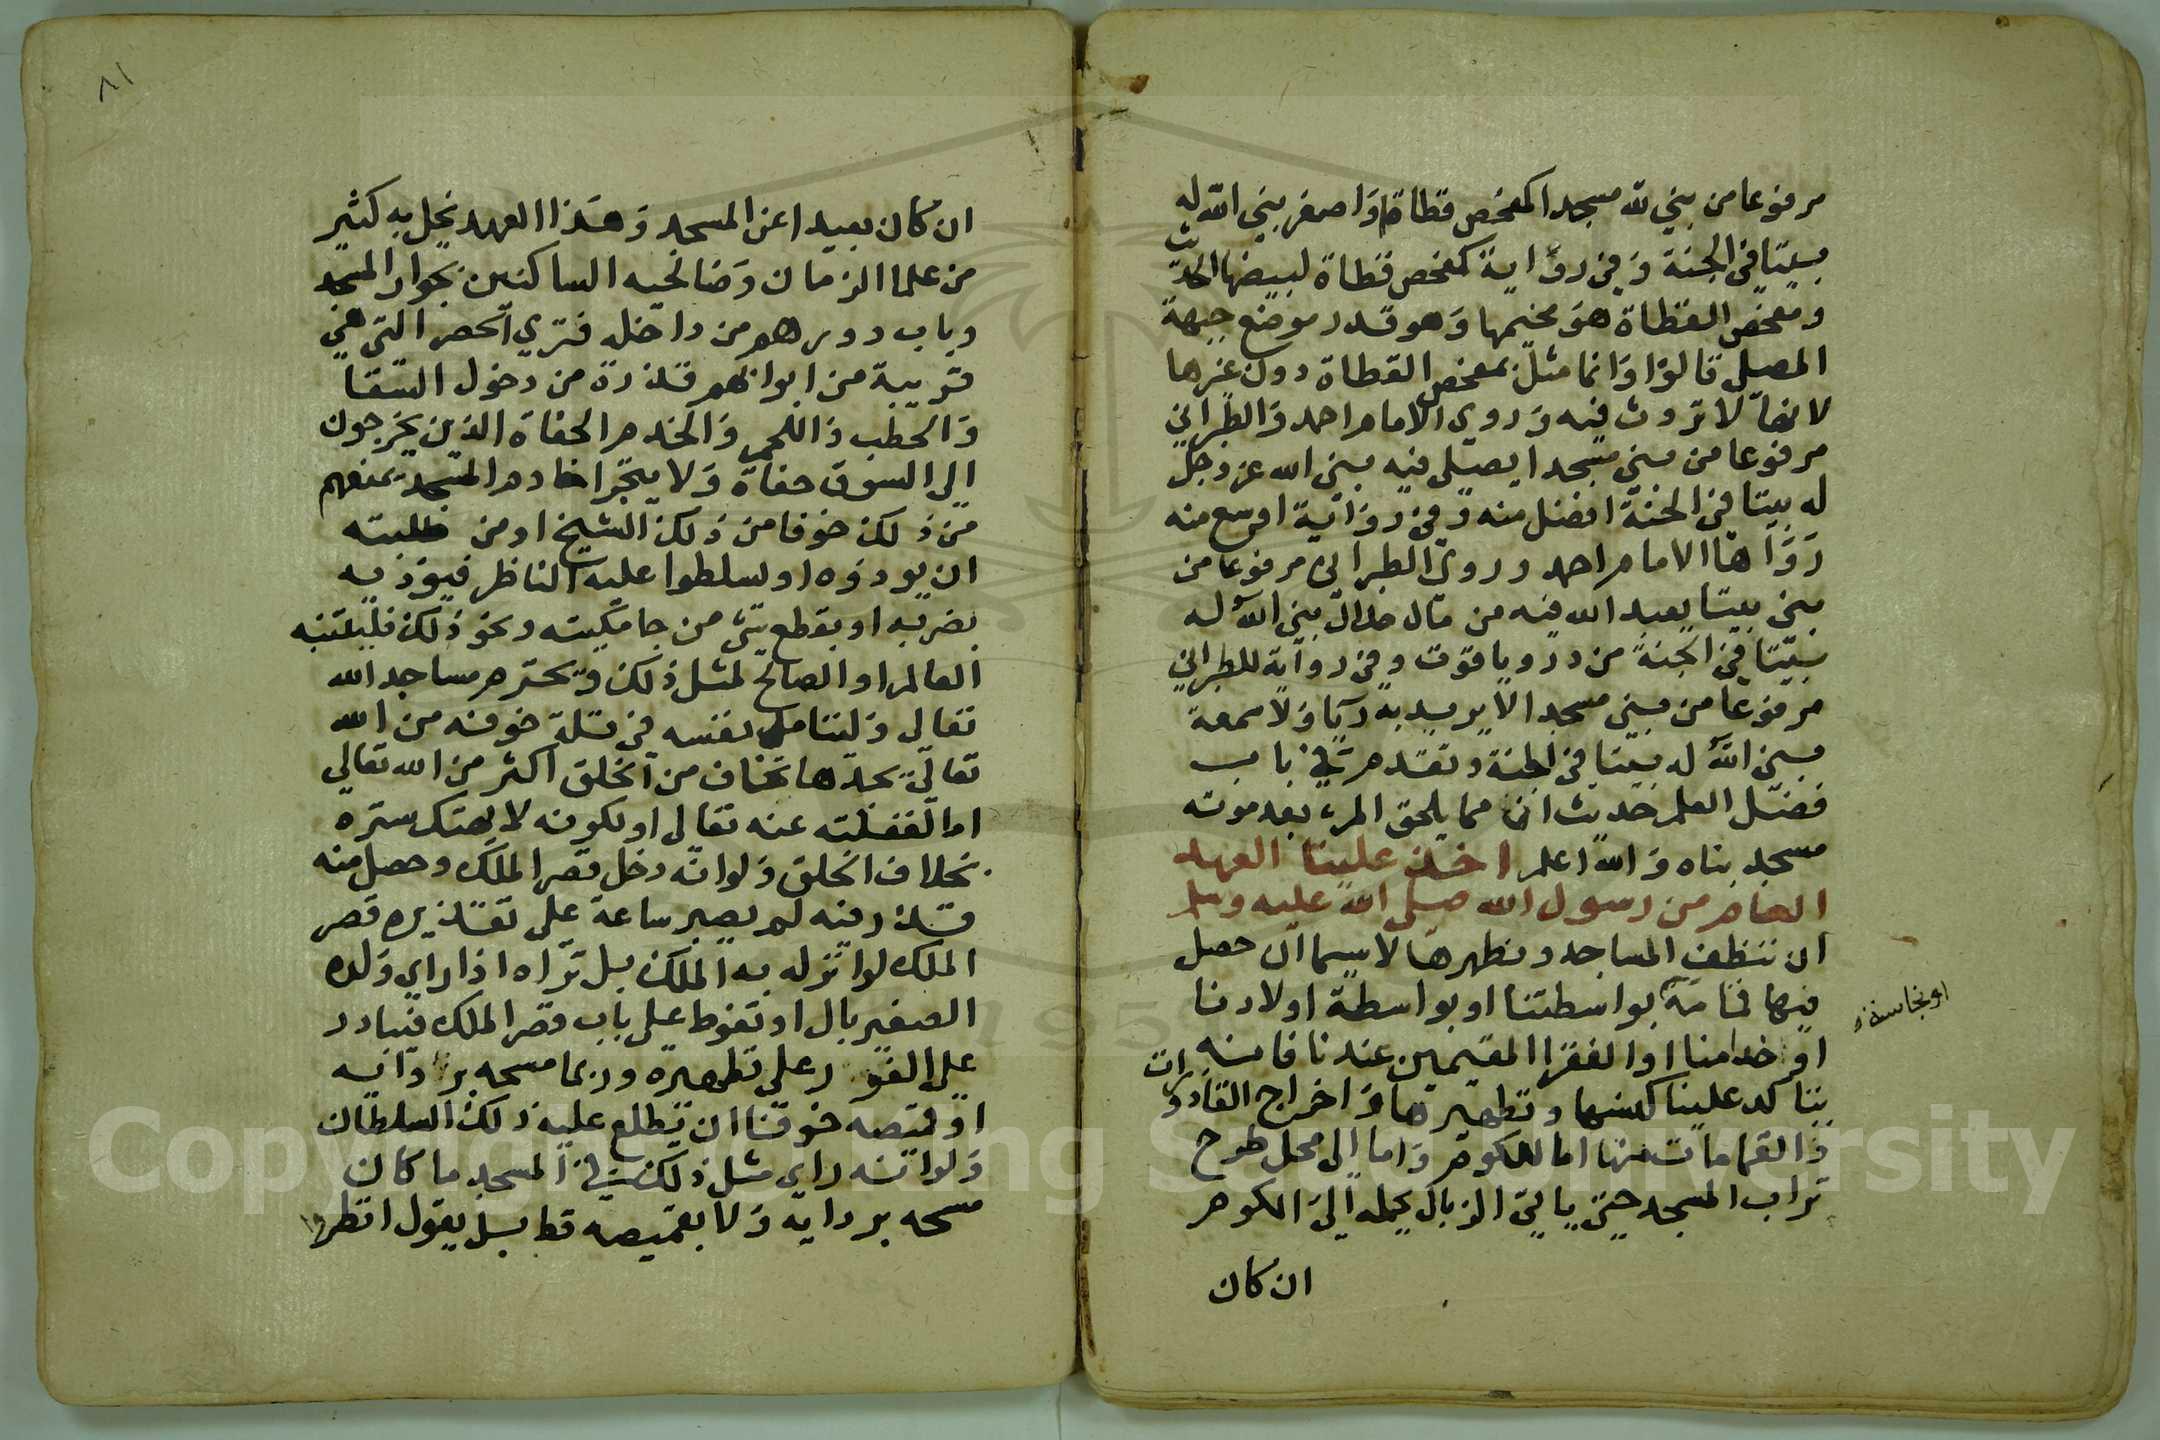 مرفوعا من بني لله مسجدا كمفحص قطاة او اصغر بني الله له
بيتا في الجنة وفي رواية كمفحص قطاة لبيضها الحديث
ومفحص القطاة هو مخيمها وهو قدر موضع جبهة
المصلي قالوا وانما مثل بمفحص القطاة دون غيرها
لانها لا تروث فيه وروي الامام احمد والطبراني
مرفوعا من بني مسجدا يصلي فيه بني الله عز وجل
له بيتا في الجنة افضل منه وفي رواية اوسع منه
رواها الامام احمد وروي الطبراني مرفوعا من
بني بيتا يعبد الله فيه من مال حلال بني الله له
بيتا في الجنة من در وياقوت وفي رواية للطبراني
مرفوعا من بني مسجدا لا يريد به ريا ولا سمعة
بني الله له بيتا في الجنة وتقدم في باب
فضل العلم حديث ان مما يلحق المرء بعد موته
مسجد بناه والله اعلم اخذ علينا العهد
العام من رسول الله صلي الله عليه وسلم
ان ننظف المساجد ونطهرها لا سيما ان حصل
فيها قمامة بواسطتنا او بواسطة اولادنا
او نجاسة
او خدامنا او الفقرا المقيمين عندنا فانه
يتاكد علينا كنسها وتطهيرها واخراج القاذورات
والقمامات منها اما للكوم واما الي محل طرح
تراب المسجد حتي ياتي الزبال يحمله الي الكوم
ان كان
٨١
ان كان بعيدا عن المسجد وهذا العهد يخل به كثير
من علما الزمان وصالحيه الساكنين بجوار المسجد
وباب دورهم من داخله فتري الحصر التي هي
قريبة من ابوابهم قذرة من دخول السقا
والحطب واللحم والخدم الحفاة الذين يخرجون
الي السوق حفاة ولا يتجرا خادم المسجد يمنعهم
من ذلك خوفا من ذلك الشيخ او من طلبته
ان يوذوه او يسلطوا عليه الناظر فيوذيه
بضربه او بقطع شي من جامكيته ونحو ذلك فليتنبه
العالم او الصالح لمثل ذلك ويحترم مساجد الله
تعالي وليتامل نفسه في قلة خوفه من الله
تعالي يجدها تخاف من الخلق اكثر من الله تعالي
اما لغفلته عنه تعالي او لكونه لا يهتك ستره
بخلاف الخلق ولو انه دخل قصر الملك وحصل منه
قذر فيه لم يصبر ساعة علي تقذيره قصر
الملك لو انزله به الملك بل تراه اذا راي ولده
الصغير بال او تغوط علي باب قصر الملك فيبادر
علي الفور علي تطهيره وربما مسحه بردائه
او قميصه خوفا ان يطلع عليه ذلك السلطان
ولو انه راي مثل ذلك في المسجد ما كان
مسحه بردايه ولا بقميصه قط بل يقول انظروا
Copyright © King Saud University